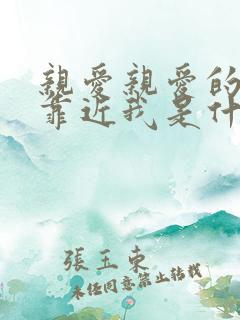 親愛親愛的
靠近我是什
張玉東
未任同意禁止转载